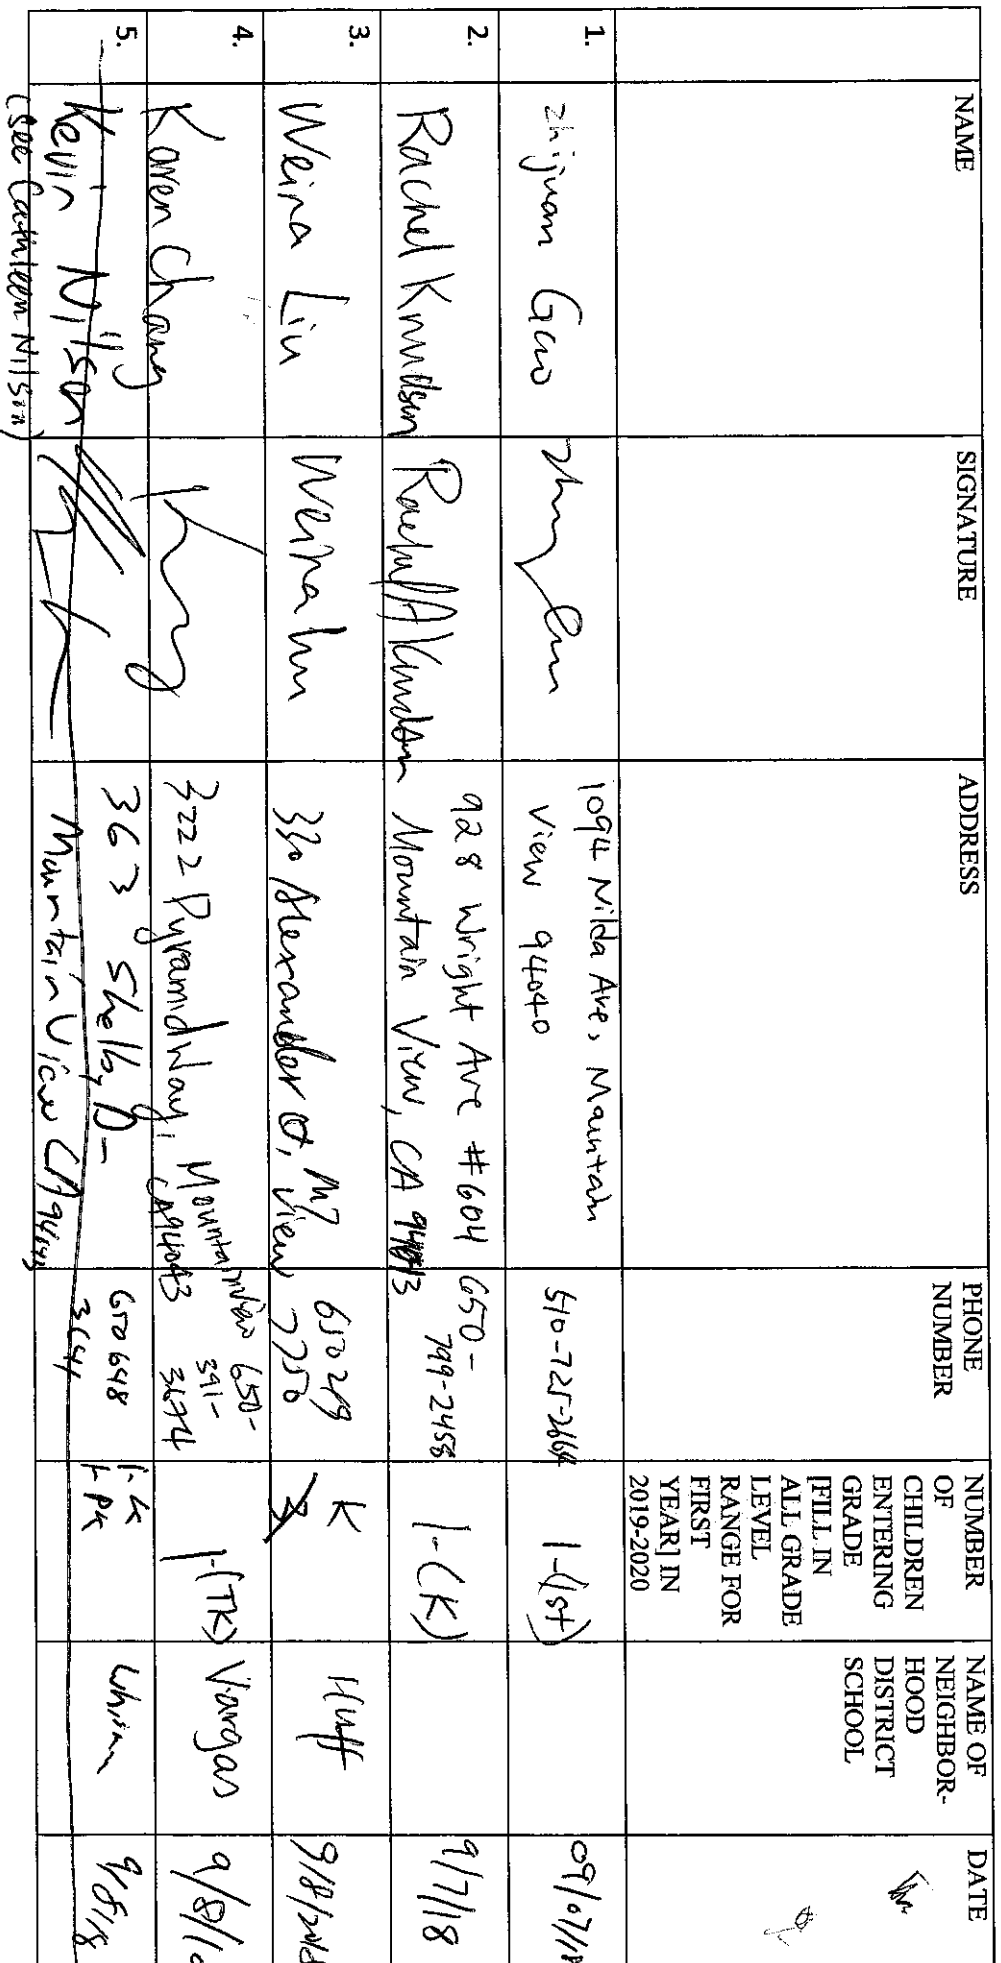 NAME
SIGNATURE
ADDRESS
PHONE
NUMBER
NUMBER
OF
CHILDREN
ENTERING
GRADE
[FILL IN
ALL GRADE
LEVEL
RANGE FOR
FIRST
YEAR] IN
2019-2020
NAME OF
NEIGHBOR-
HOOD
DISTRICT
SCHOOL
DATE
1.
Zhijuan Gao
1094 Nilda Ave, Mountain
View 94040
510-725-2664
1-(1st)
09/07/18
2.
Rachel Knudsen
Rachel A Knudsen
928 Wright Ave #604
Mountain View, CA 94043
650-
799-2458
1-(K)
9/7/18
3.
Weina Liu
Weina Liu
330 Alexander Ct, MT
View
650 219
7750
K
Huff
9/8/2018
4.
Karen Chang
3222 Pyramid Way, Mountain View
CA 94043
650-
391-
3674
1-(TK)
Vargas
9/8/1
5.
Kevin Nilson
(See Cathleen Nilson)
363 Shelly D-
Mountain View CA 94043
650 648
3644
1-K
1-PK
9/8/18